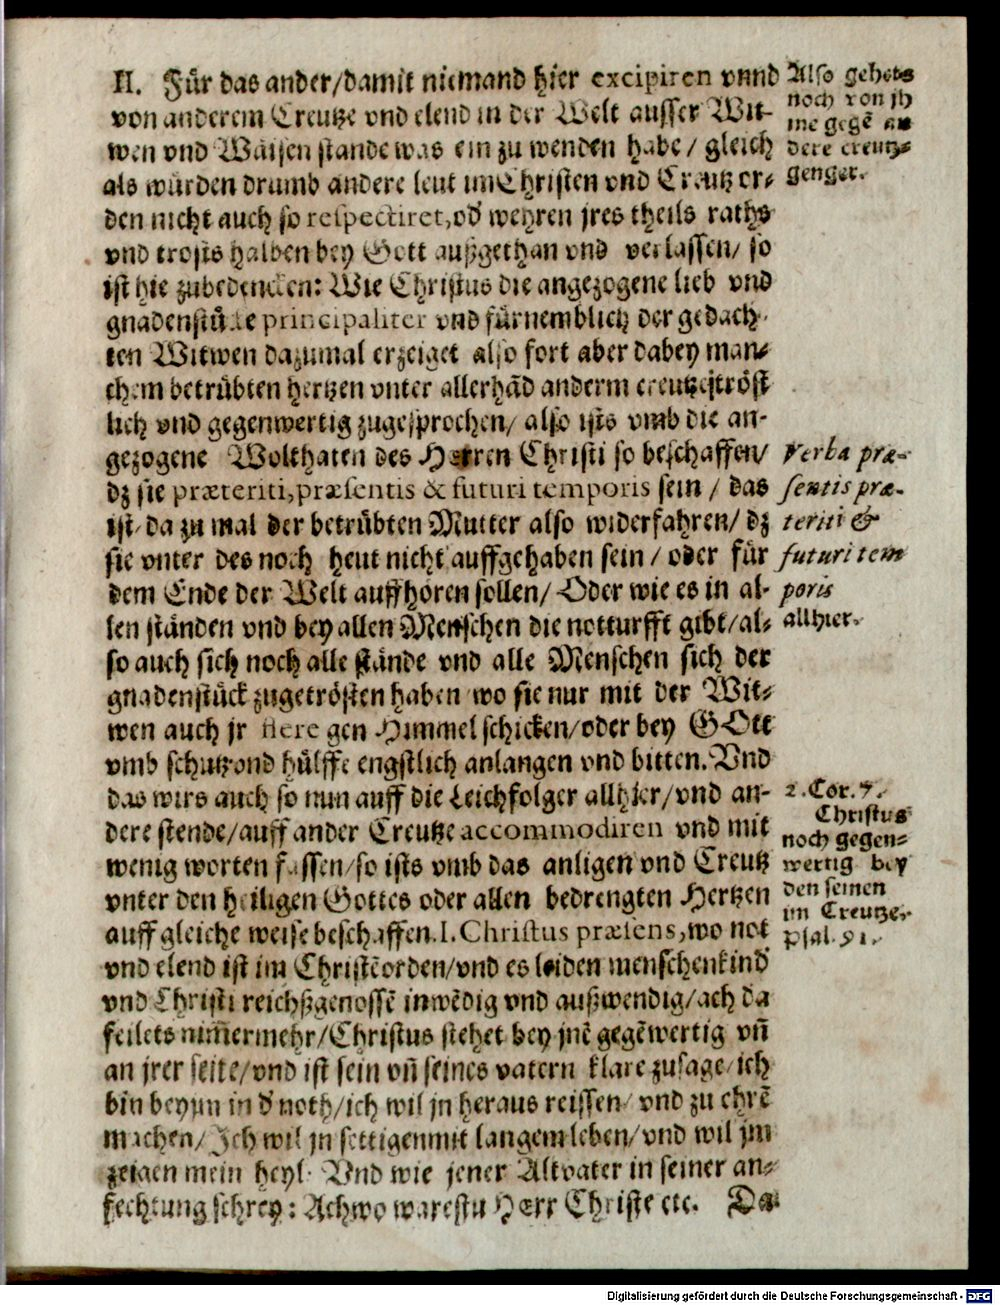 II. Für das ander/damit niemand hier excipiren vnnd
von anderem Creutze vnd elend in der Welt ausser Wit-
wen vnd Wäisen stande was ein zu wenden habe/ gleich
als würden drumb andere leut im Christen vnd Creutz or-
den nicht auch so respectiret, od' wehren jres theils raths
vnd trosts halben bey Gott außgethan vnd verlassen/ so
ist hie zubedencken: Wie Christus die angezogene lieb vnd
gnadenstücke principaliter vnd fürnemblich der gedach-
ten Witwen dazumal erzeiget also fort aber dabey man-
chem betrübten hertzen vnter allerhãd anderm creutze tröst
lich vnd gegenwertig zugesprochen/ also ists vmb die an-
gezogene Wolthaten des Herren Christi so beschaffen/
dz sie præteriti, præsentis & futuri temporis sein / das
ist/ da zu mal der betrübten Mutter also widerfahren/ dz
sie vnter des noch heut nicht auffgehaben sein / oder für
dem Ende der Welt auffhören sollen/ Oder wie es in al-
len ständen vnd bey allen Menschen die notturfft gibt/al-
so auch sich noch alle stände vnd alle Menschen sich der
gnadenstück zugetrösten haben wo sie nur mit der Wit-
wen auch jr flere gen Himmel schicken/oder bey GOtt
vmb schutz vnd hülffe engstlich anlangen vnd bitten. Vnd
das wirs auch so nun auff die Leichfolger allhier/vnd an-
dere stende/auff ander Creutze accommodiren vnd mit
wenig worten fassen/so ists vmb das anligen vnd Creutz
vnter den heiligen Gottes oder allen bedrengten Hertzen
auff gleiche weise beschaffen. I. Christus præsens, wo not
vnd elend ist im Christẽorden/vnd es leiden menschenkind
vnd Christi reichßgenossẽ inwẽdig vnd außwendig/ach da
feilets nim̃ermehr/Christus stehet bey jnẽ gegẽwertig vñ
an jrer seite/vnd ist sein vñ seines vatern klare zusage/ich
bin bey jm in d' noth/ich wil jn heraus reissen/ vnd zu ehrẽ
machen/ Ich wil jn settigen mit langem leben/vnd wil jm
zeigen mein heyl. Vnd wie jener Altvater in seiner an-
fechtung schrey: Ach wo warestu Herr Christe etc. Da
Also gehets
noch von jh
me gegẽ an
dere creutz-
genger.
Verba præ-
sentis præ-
teriti &
futuri tem
poris
allhier.
2. Cor. 7.
Christus
noch gegen-
wertig bey
den seinen
im Creutze.
Psal. 91.
Digitalisierung gefördert durch die Deutsche Forschungsgemeinschaft - DFG